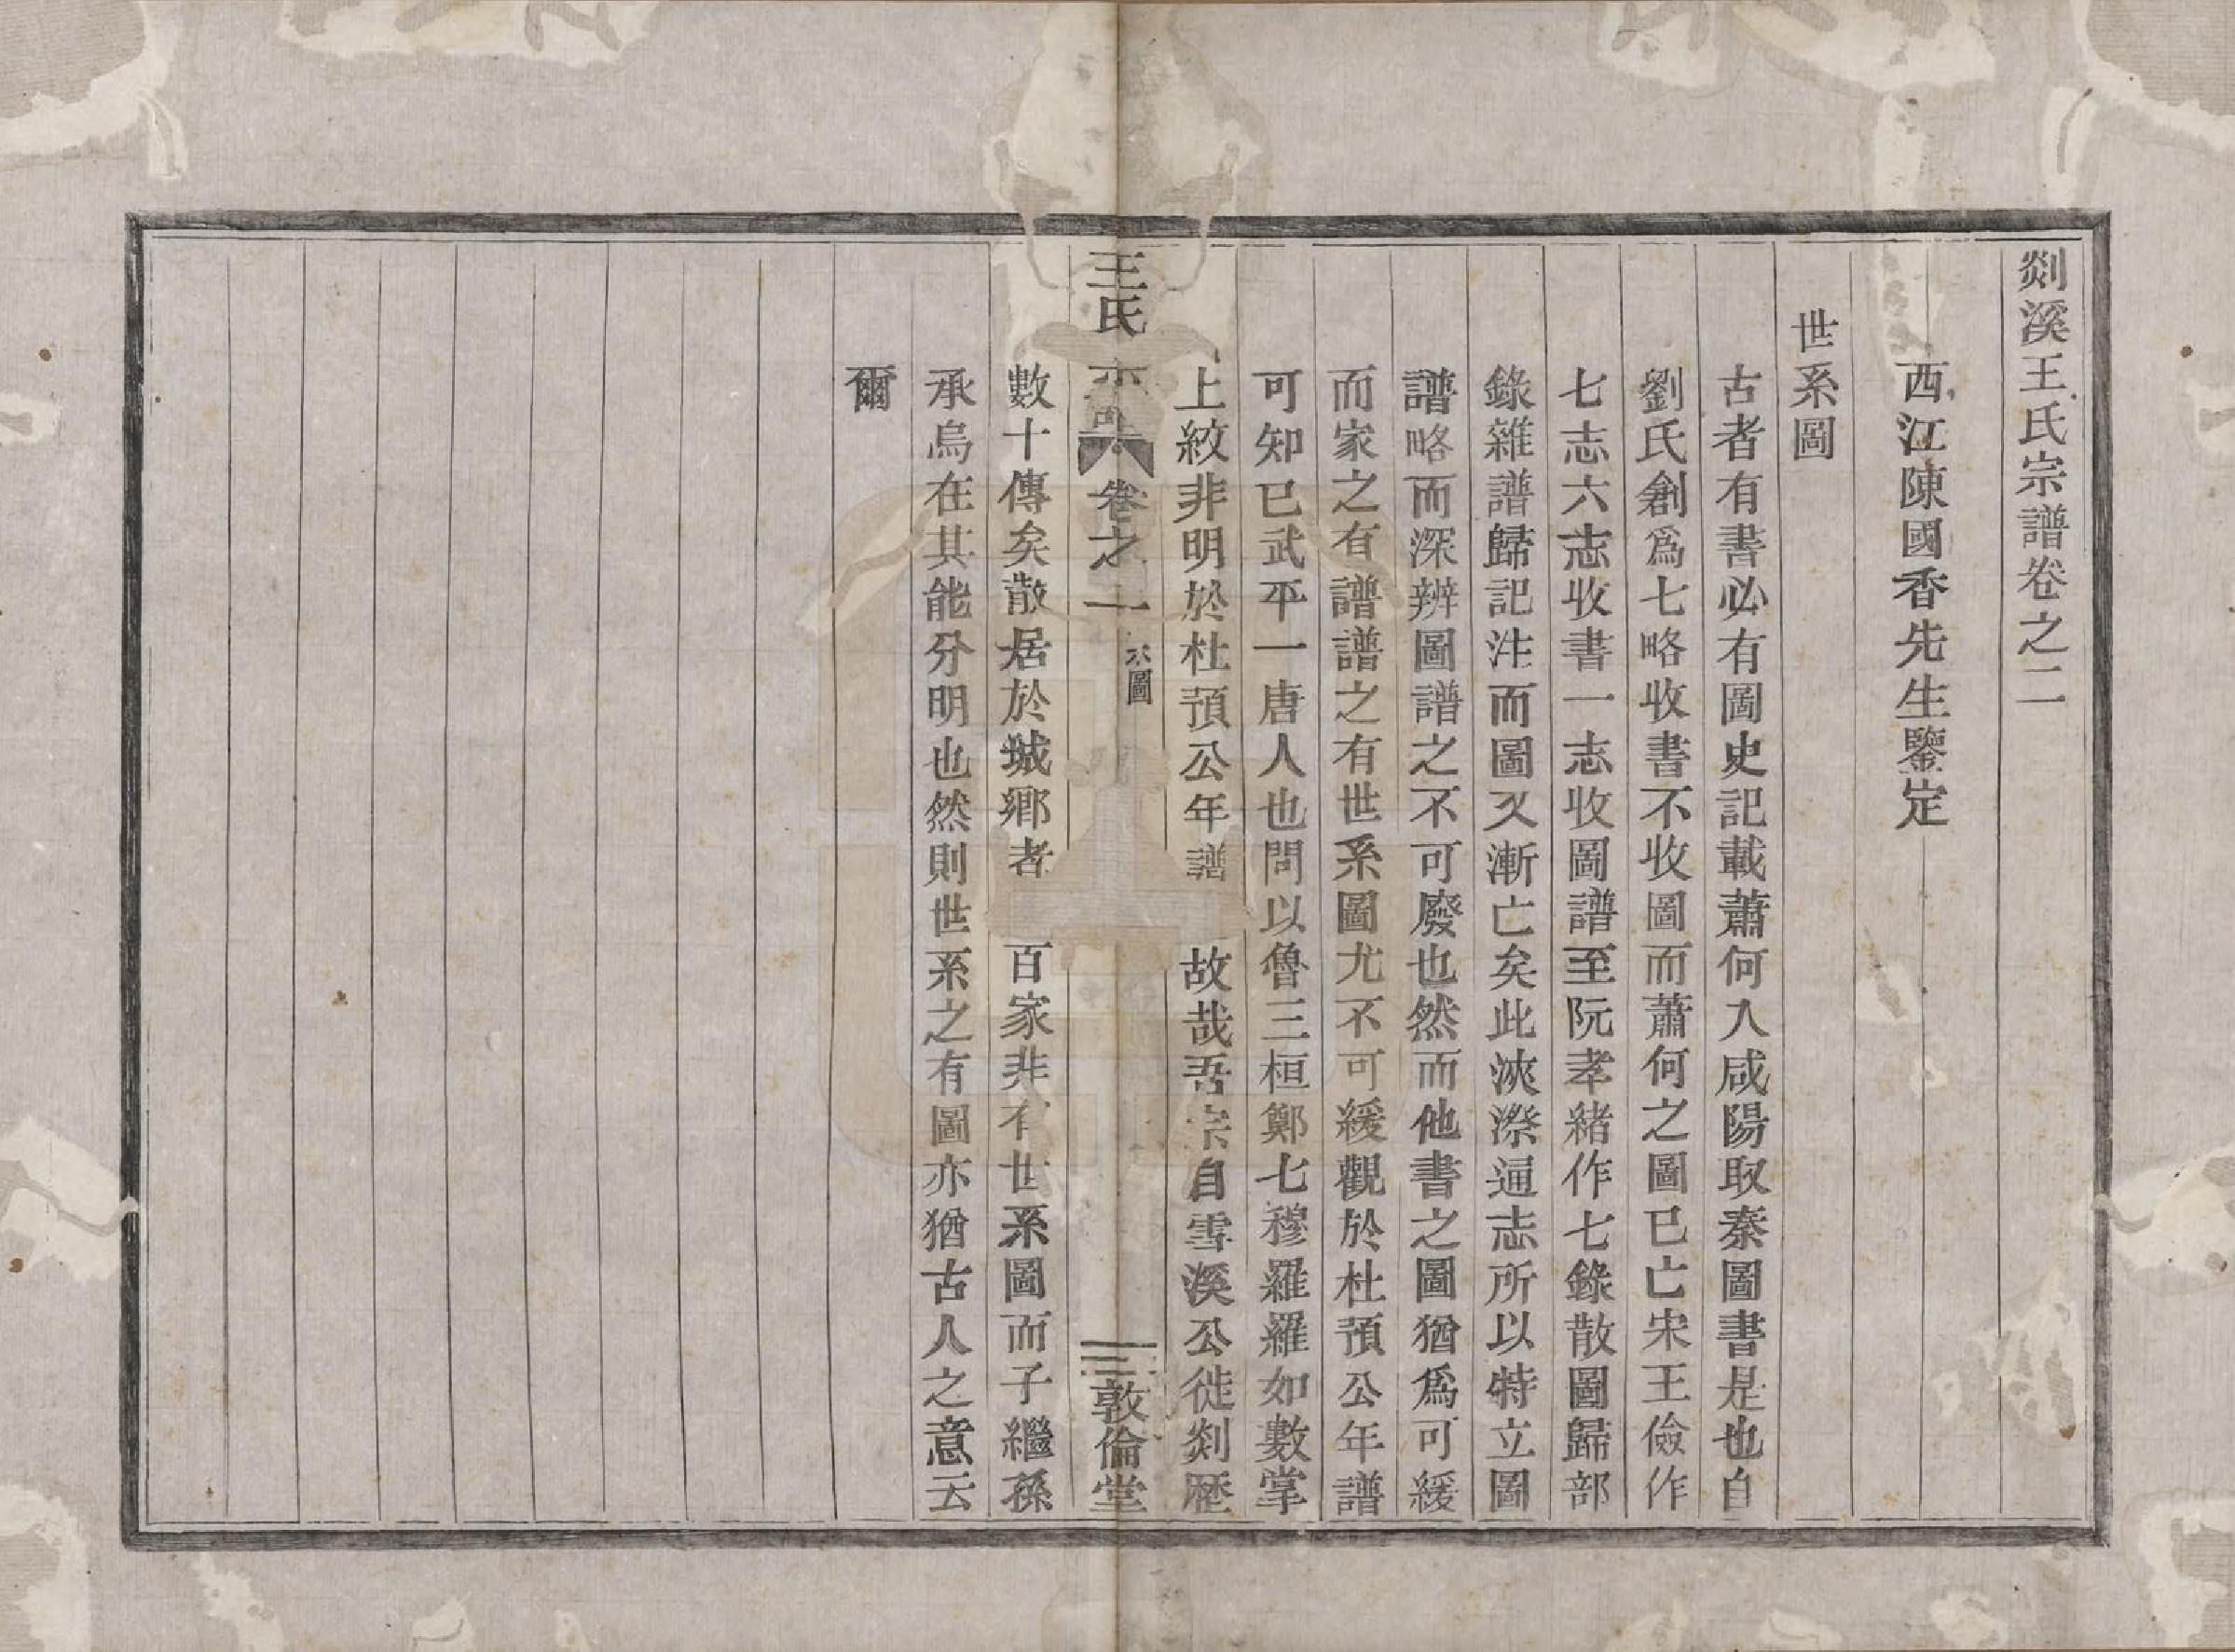 剡溪王氏宗譜卷之二
西江陳國香先生鑒定
世系圖
古者有書必有圖史記載蕭何入咸陽取秦圖書是也自
劉氏創爲七略收書不收圖而蕭何之圖已亡宋王儉作
七志六志收書一志收圖譜至阮孝緒作七錄散圖歸部
錄雜譜歸記注而圖又漸亡矣此浹漈通志所以特立圖
譜略而深辨圖譜之不可廢也然而他書之圖猶爲可緩
而家之有譜譜之有世系圖尤不可緩觀於杜預公年譜
可知已武平一唐人也問以魯三桓鄭七穆羅羅如數掌
上紋非明於杜預公年譜故哉吾宗自雪溪公徙剡歷
王氏宗譜 卷之二 系圖 三 敦倫堂
數十傳矣散居於城鄉者百家非有世系圖而子繼孫
承烏在其能分明也然則世系之有圖亦猶古人之意云
爾